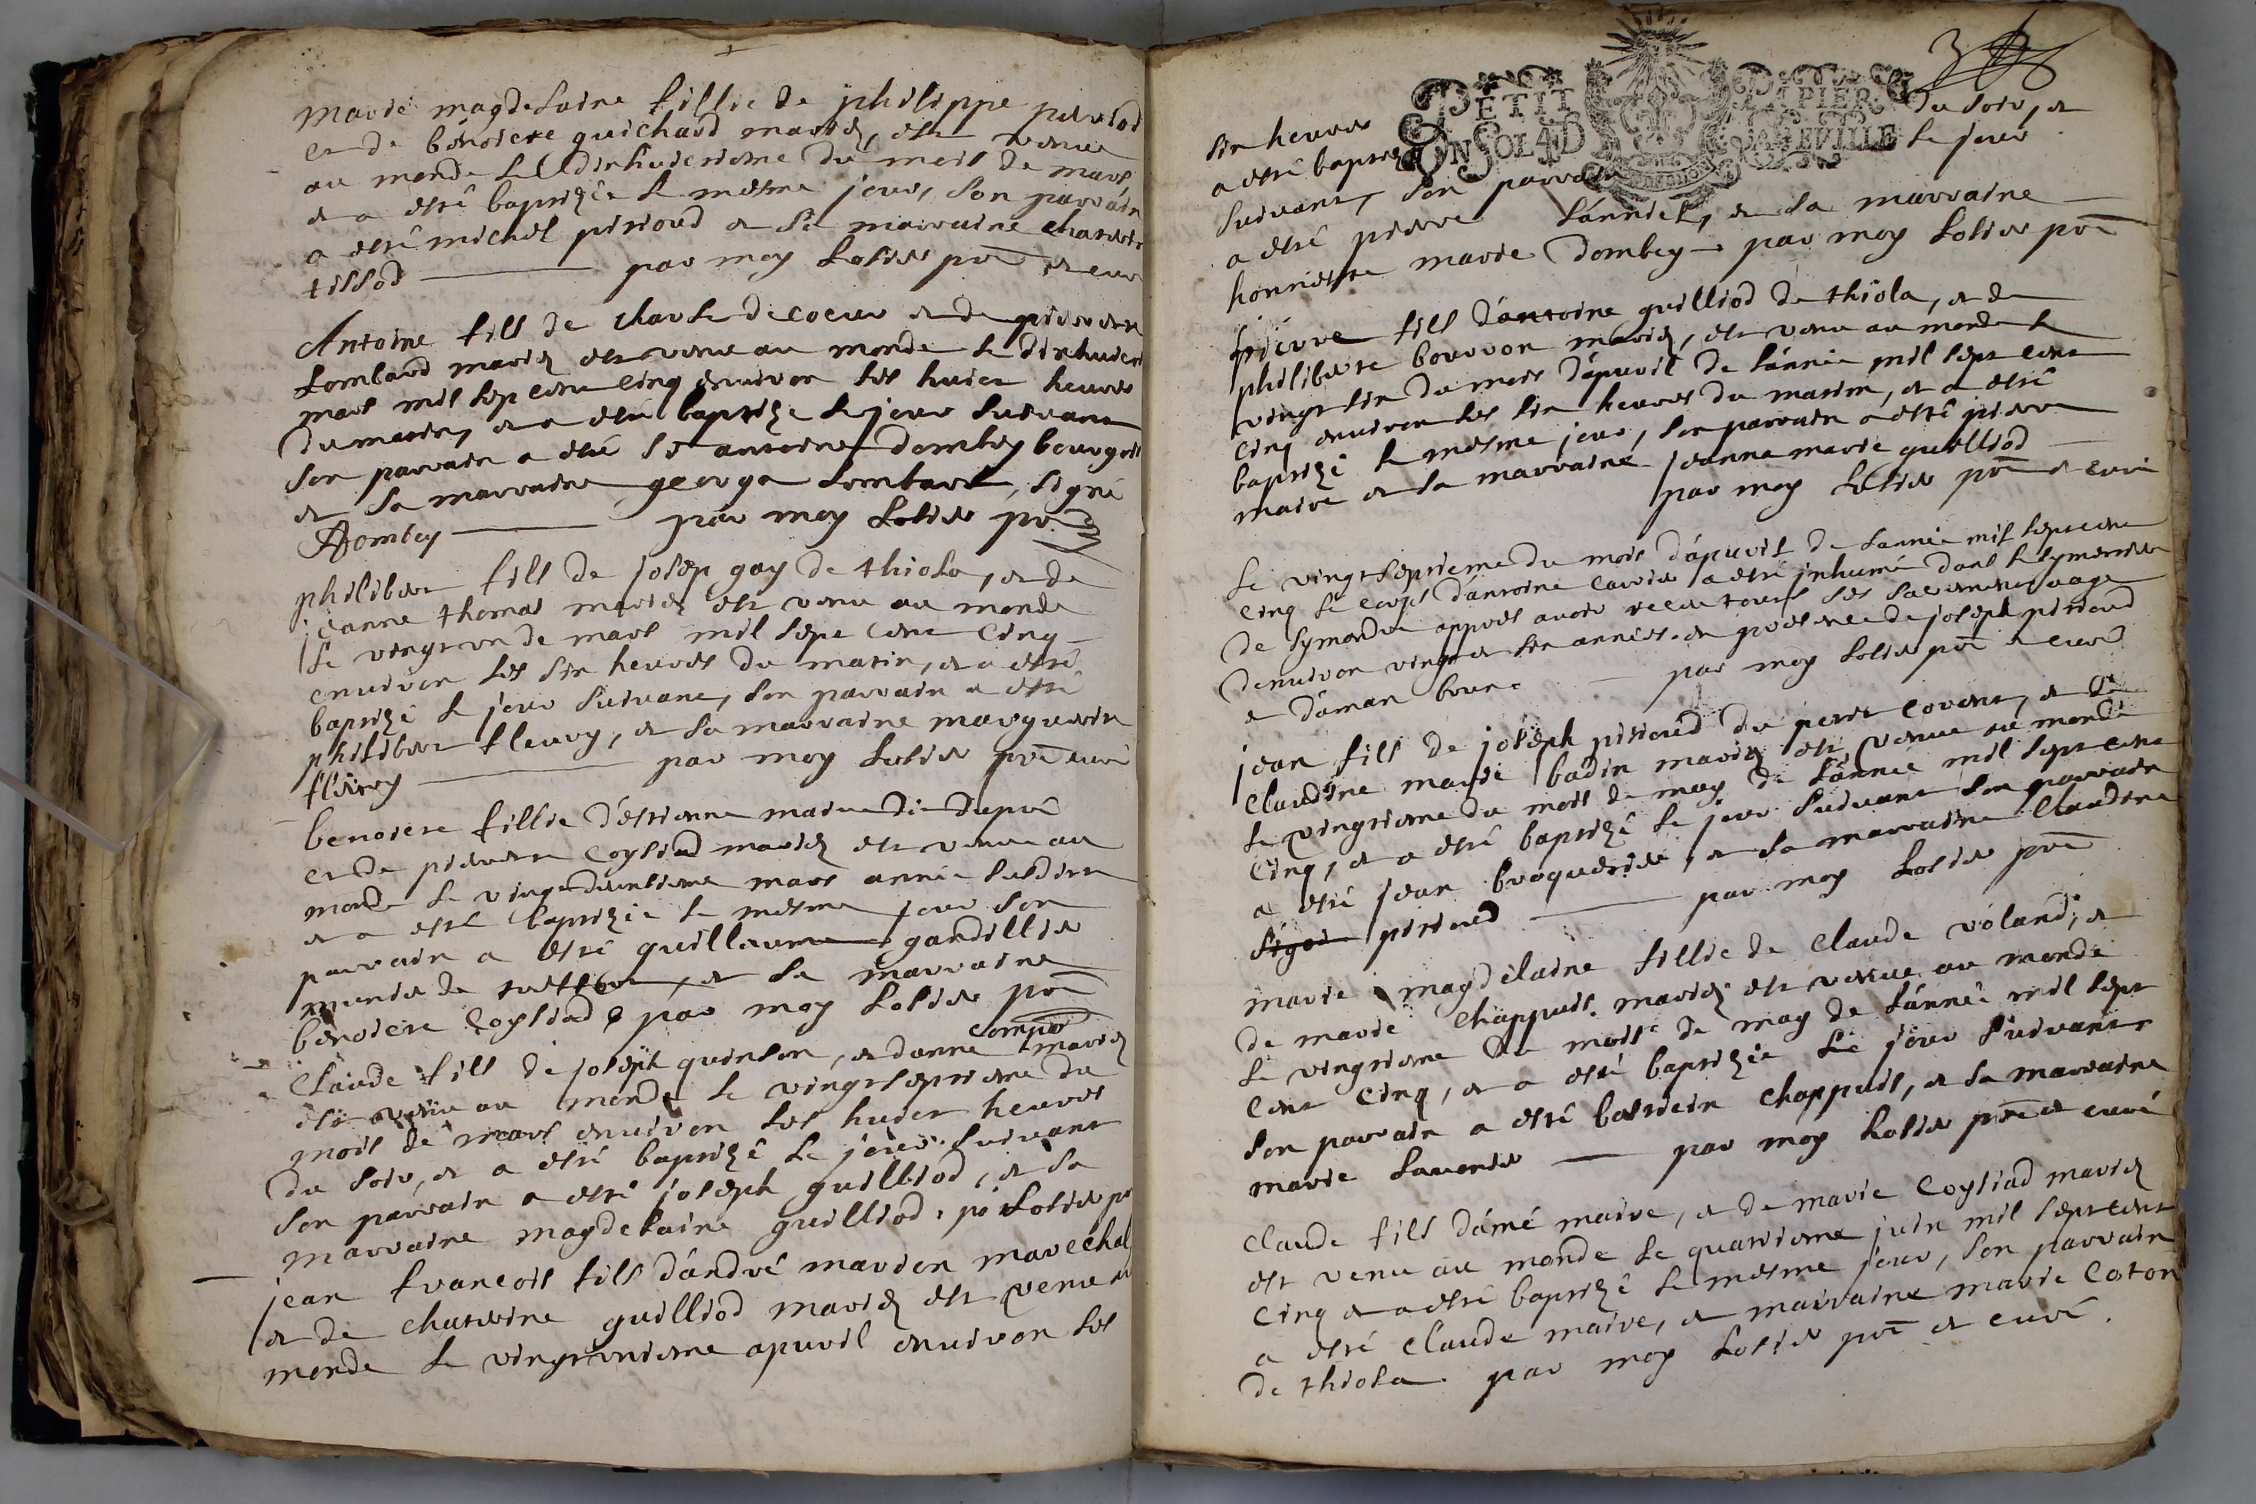 marie magdelaine fillie de philippe piriod
et de benoiete guichard mariez, est venue
au monde le dixhuictiesme du mois de mars
et a esté baptizée le mesme jour, son parrain
a esté michel pirioud et sa marraine
tissod par moy Lolier prē et curé
Antoine fils de charle decoeur et de pierrette
Lombard mariez est venu au monde le dixhuict
mars mil sep cent cinq environ les huict heures
du matin, et a esté baptizé le jour suivant
son parrain a esté sr antoine dombey bourgois
et sa marraine george Lombard, signé
Dombey par moy Lolier prē
philibert fils de josep gay de thiola, et de
jeanne thomas mariez est venu au monde
le vingt un de mars mil sept cent cinq
environ les six heures du matin, et a esté
baptizé le jour suivant, son parrain a esté
philibert fleury, et sa marraine marguerite
fleury par moy Lolier prē curé
benoiete fillie d'estienne maire dit dupré
et de pierrette Coyliad mariez est venue au
monde le vingt deuxiesme mars année susdite
et a esté baptizée le mesme jour son
parrain a esté guillaume gandillier
munier de , et sa marraine
benoiete Coyliad par moy Lolier prē
Claude fils de joseph quinson, et danne compo mariez
est venu au monde le vingt septiesme du
mois de mars environ les huict heures
du soir, et a esté baptizé le jour suivant
son parrain a esté joseph guilliod, et sa
marraine magdelaine guilliod, p Lolier prē
jean francois fils d'andré marion marechal
et de guilliod mariez est venu au
monde le vingt uniesme apuril environ les
six heures du soir, et
a esté baptizé le jour
PETIT PAPIER
UN SOL 4 D
suivant, son parrain
a esté pierre Lanniel, et sa marraine
honneste marie Dombey par moy Lolier prē
pierre fils d'antoine guilliod de thiola, et de
philiberte bourron mariez, est venu au monde le
vingt six du mois d'apuril de l'année mil sept cent
cinq environ les six heures du matin, et a esté
baptizé le mesme jour, son parrain a esté pierre
maire et sa marraine jeanne marie guilliod
par moy Lolier prē et curé
Le vingt septieme du mois d'apuril de lannée mil sept cent
cinq le corps d'antoine a esté inhumé dans le symentiere
de Symandre apprès avoir receu touts ses sacrements aagé
denuiron vingt et six années en presence de joseph pirioud
et d'aman brune par moy Lolier prē et curé
jean fils de joseph pirioud du petit covent, et de
Claudine marie badin mariez est venu au monde
le vingtiesme du mois de may de l'année mil sept cent
cinq, et a esté baptizé le jour suivant son parrain
a esté jean broquerier, et sa marraine Claudine
pirioud par moy Lolier prē
marie magdelaine fillie de Claude voland, et
de marie Chappuis mariez est venue au monde
le vingtiesme du mois de may de l'année mil sept
cent cinq, et a esté baptizée le jour suivant
son parrain a esté bastiein Chappuis, et sa marraine
marie Lauerier par moy Lolier prē et curé
Claude fils d'amé maire, et de marie Coyliad mariez
est venu au monde le quatriesme juin mil sept cent
cinq et a esté baptizé le mesme jour, son parrain
a esté Claude maire, et marraine marie Coton
de thiola par moy Lolier prē et curé.